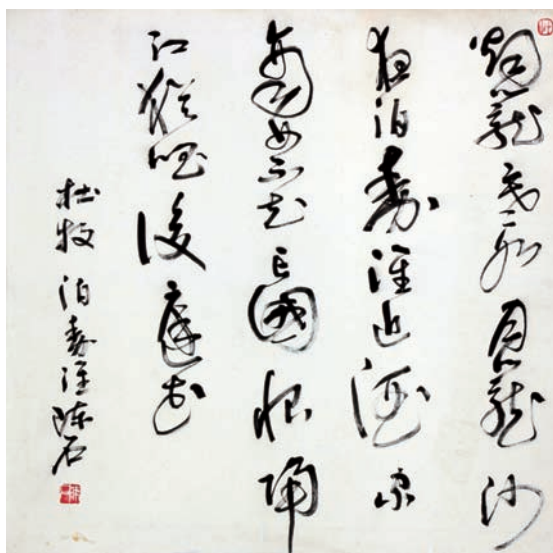 烟籠寒水月籠沙
夜泊秦淮近酒家
商女不知亡國恨隔
江猶唱後庭花
杜牧 泊秦淮 陈石